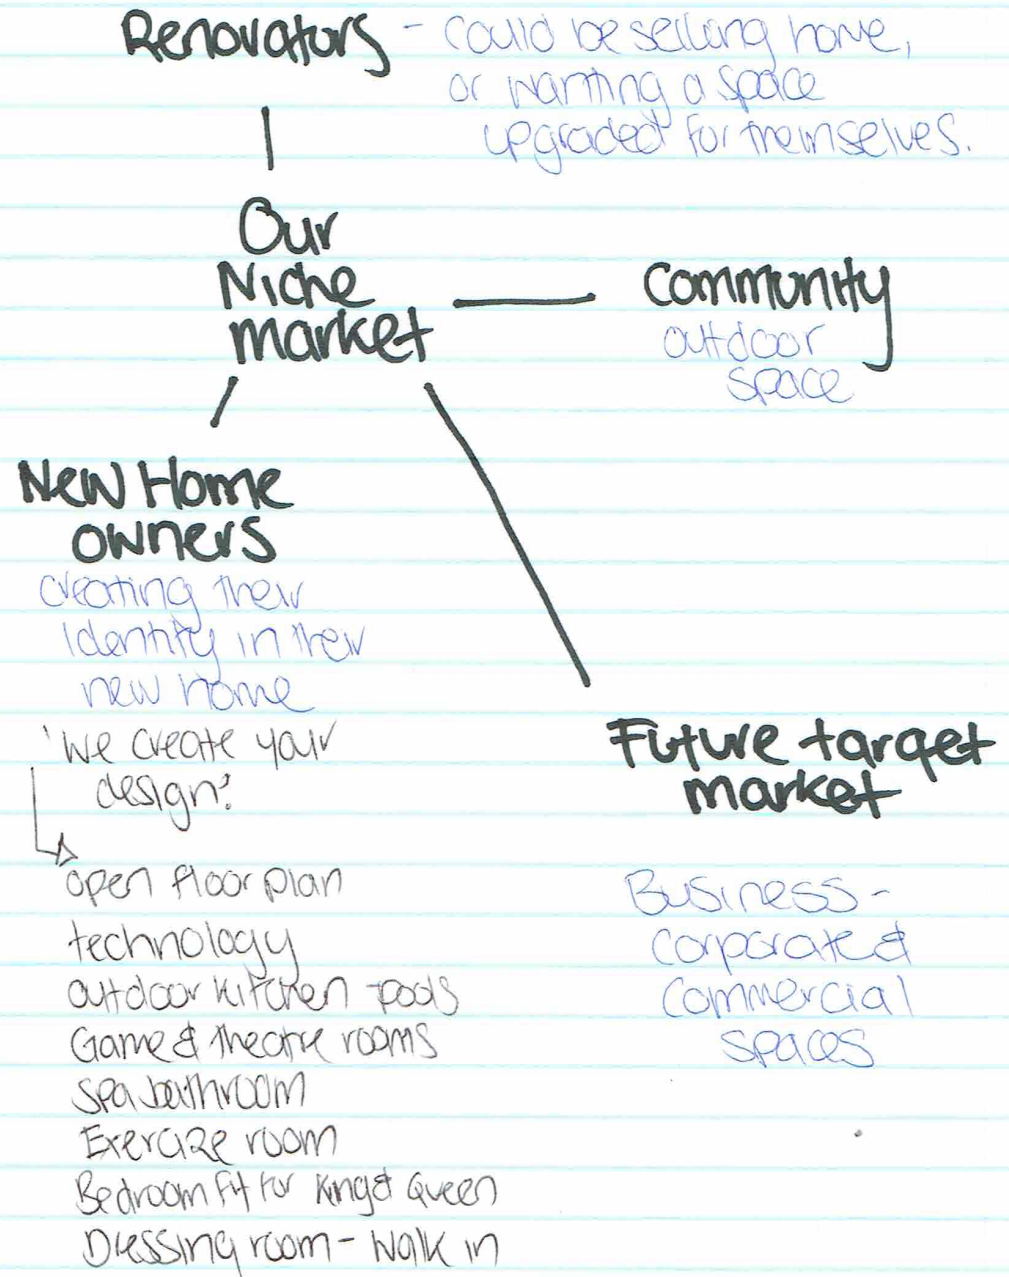 Renovators - Could be selling home,
or wanting a space
upgraded for themselves.
Our
Niche
market
Community
outdoor
space
New Home
owners
creating their
Identity in their
new home
'We create your
design'
open floor plan
technology
outdoor kitchen - pools
Game & theatre rooms
Spa bathroom
Exercize room
Bedroom fit for King & Queen
Dressing room - Walk in
Future target
market
Business -
Corporate &
Commercial
spaces